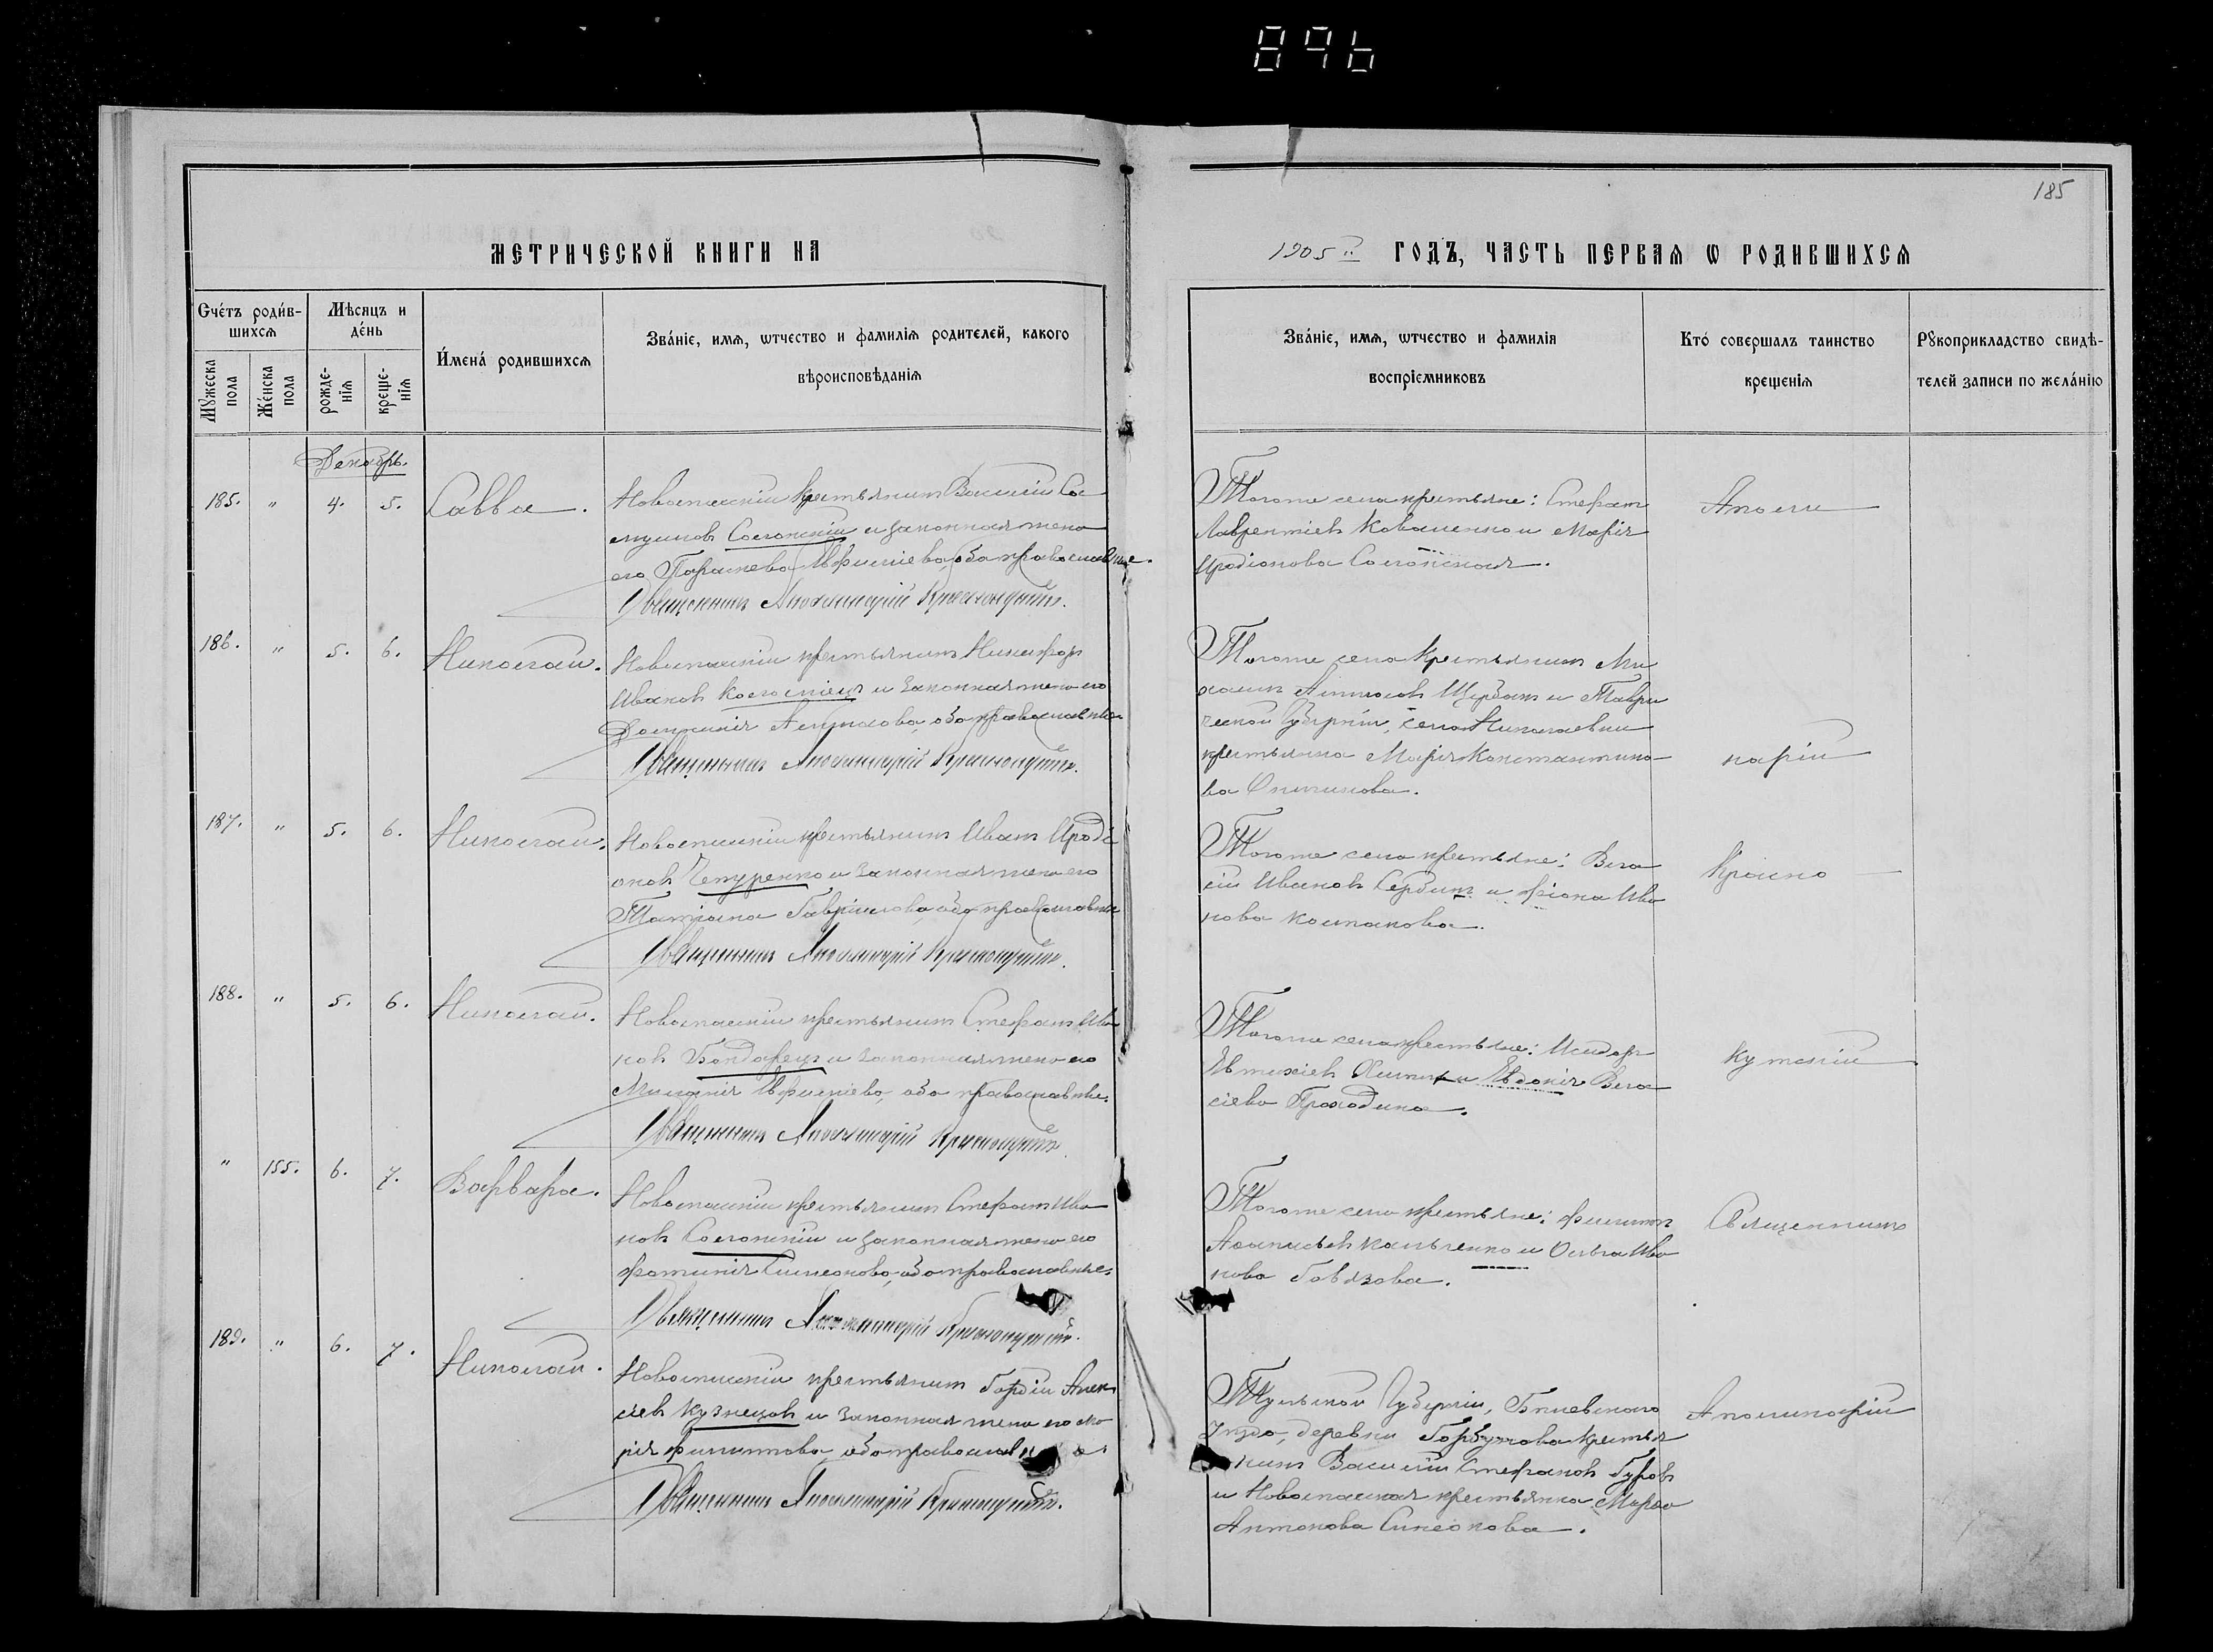 896
185
МЕТРИЧЕСКОЙ КНИГИ НА
1905 й ГОДЪ, ЧАСТЬ ПЕРВАЯ Ѡ РОДИВШИХСЯ
Счéтъ роди́в-
шихсѧ
Мѣсяцъ и
де́нь
Мꙋжеска пола
Же́нска пола
рожде-
нїѧ
креще-
нїѧ
И҆́мена́ родившихсѧ
Зва́нїе, имѧ, ѿтчество и фамилїѧ родителей, какого
вѣроисповѣданїѧ
Зва́нїе, имѧ, ѿтчество и фамилїѧ
воспрїемниковъ
Кто́ совершалъ таинство
крещенїѧ
Рꙋкоприкладство свидѣ-
телей записи по жела́нїю
Декабрь.
185. " 4. 5. Савва.
Новоспасскій крестьянинъ Василій Са
муиловъ и законная жена
его Ефиміева, оба православные.
Священникъ Аполлинарій Краснокутскій.
Тогоже села крестьяне: Стефанъ
Лаврентіевъ Коваленко и Марія
Иродіонова
Аполли
186. " 5. 6. Николай.
Новоспасскій крестьянинъ Никифоръ
Ивановъ и законная жена его
Домникія оба православные
Священникъ Аполлинарій Краснокутскій.
Тогоже села крестьянинъ Ми
хаилъ Щербакъ и Таври
ческой Губерніи, села Николаевки
крестьянка Марія Константино
ва
нарій
187. " 5. 6. Николай.
Новоспасскій крестьянинъ Иванъ Ироді
оновъ Чепуренко и законная жена его
Татіана Гавріилова, оба православные
Священникъ Аполлинарій Краснокутскій.
Тогоже села крестьяне: Вла
сій Ивановъ Сербинъ и Ѳіона Ива
нова Колпакова.
Красно
188. " 5. 6. Николай.
Новоспасскій крестьянинъ Стефанъ Ива
новъ Бондарецъ и законная жена его
Меланія Ефиміева, оба православные.
Священникъ Аполлинарій Краснокутскій.
Тогоже села крестьяне: Исидоръ
Евтихіевъ и Евдокія Вла
сіева Проходина.
кутскій
" 155. 6. 7. Варвара.
Новоспасскій крестьянинъ Стефанъ Ива
новъ и законная жена его
Фотинія Симеонова, оба православные.
Священникъ Аполлинарій Краснокутскій.
Тогоже села крестьяне: Филиппъ
Аѳанасьевъ Кальченко и Ольга Ива
нова Гавязова.
Священникъ
189. " 6. 7. Николай.
Новоспасскій крестьянинъ Гордій Алек
сіевъ Кузнецовъ и законная жена его Ма
рія Филиппова, оба православные.
Священникъ Аполлинарій Краснокутскій.
Тульской Губерніи,
Уѣзда, деревни Горбунова крестья
нинъ Василій Стефановъ Гуровъ
и Новоспасская крестьянка Марѳа
Антонова Симеонова.
Аполлинарій